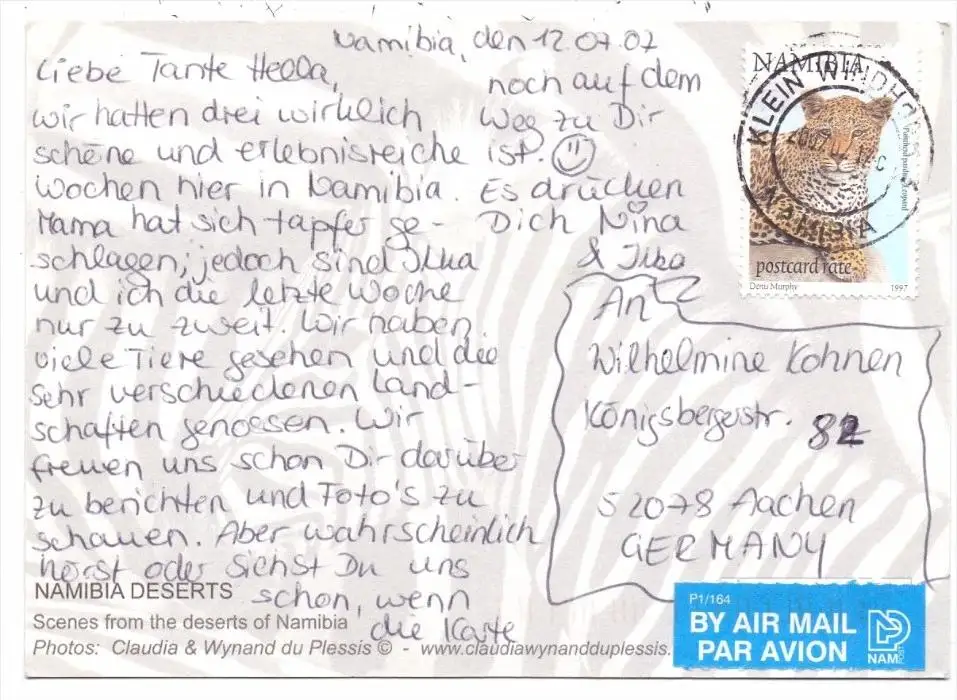 Namibia, den 12.07.07
Liebe Tante Hella,
wir hatten drei wirklich
schöne und erlebnisreiche
Wochen hier in Namibia.
Mama hat sich tapfer ge-
schlagen; jedoch sind Ilka
und ich die letzte Woche
nur zu zweit. Wir haben
viele Tiere gesehen und die
sehr verschiedenen Land-
schaften genossen. Wir
freuen uns schon Dir darüber
zu berichten und Foto's zu
schauen. Aber wahrscheinlich
hörst oder siehst Du uns
schon, wenn
die Karte
noch auf dem
Weg zu Dir
ist. ☺
Es drücken
Dich Nina
& Ilka
An
Wilhelmine Kohnen
Königsbergerstr. 82
52078 Aachen
GERMANY
NAMIBIA
postcard rate
Denis Murphy 1997
KLEIN WINDHOEK
NAMIBIA
NAMIBIA DESERTS
Scenes from the deserts of Namibia
Photos: Claudia & Wynand du Plessis © - www.claudiawynandduplessis.
P1/164
BY AIR MAIL
PAR AVION
NAM
POST